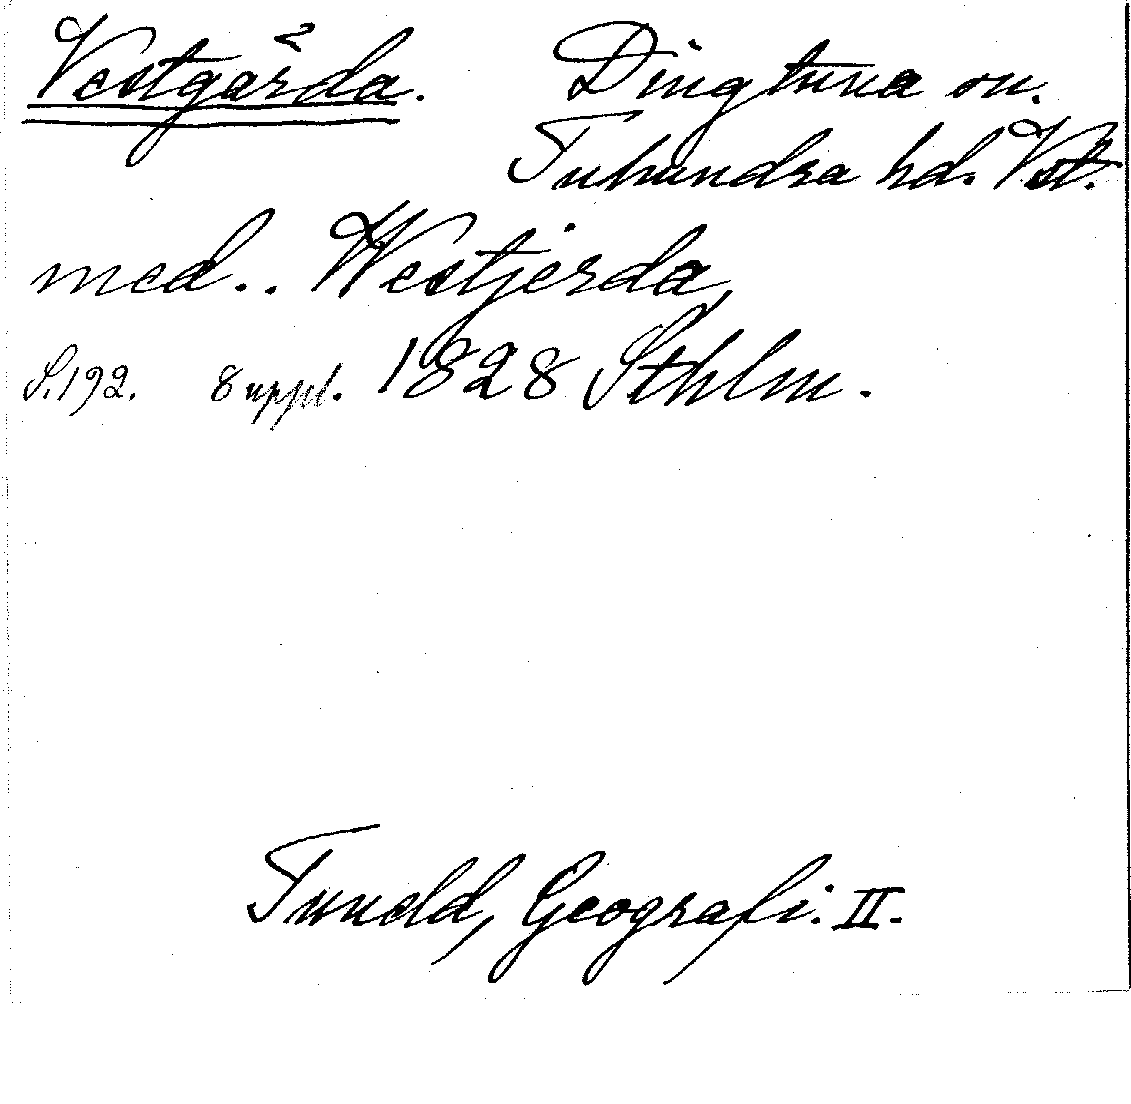 Vestgärda. Dingtuna sn.
Tuhundra hd. Vst.
med.. Westjerda,
S.192. 8 uppl. 1828 Sthlm.
Tuneld, Geografi. II.